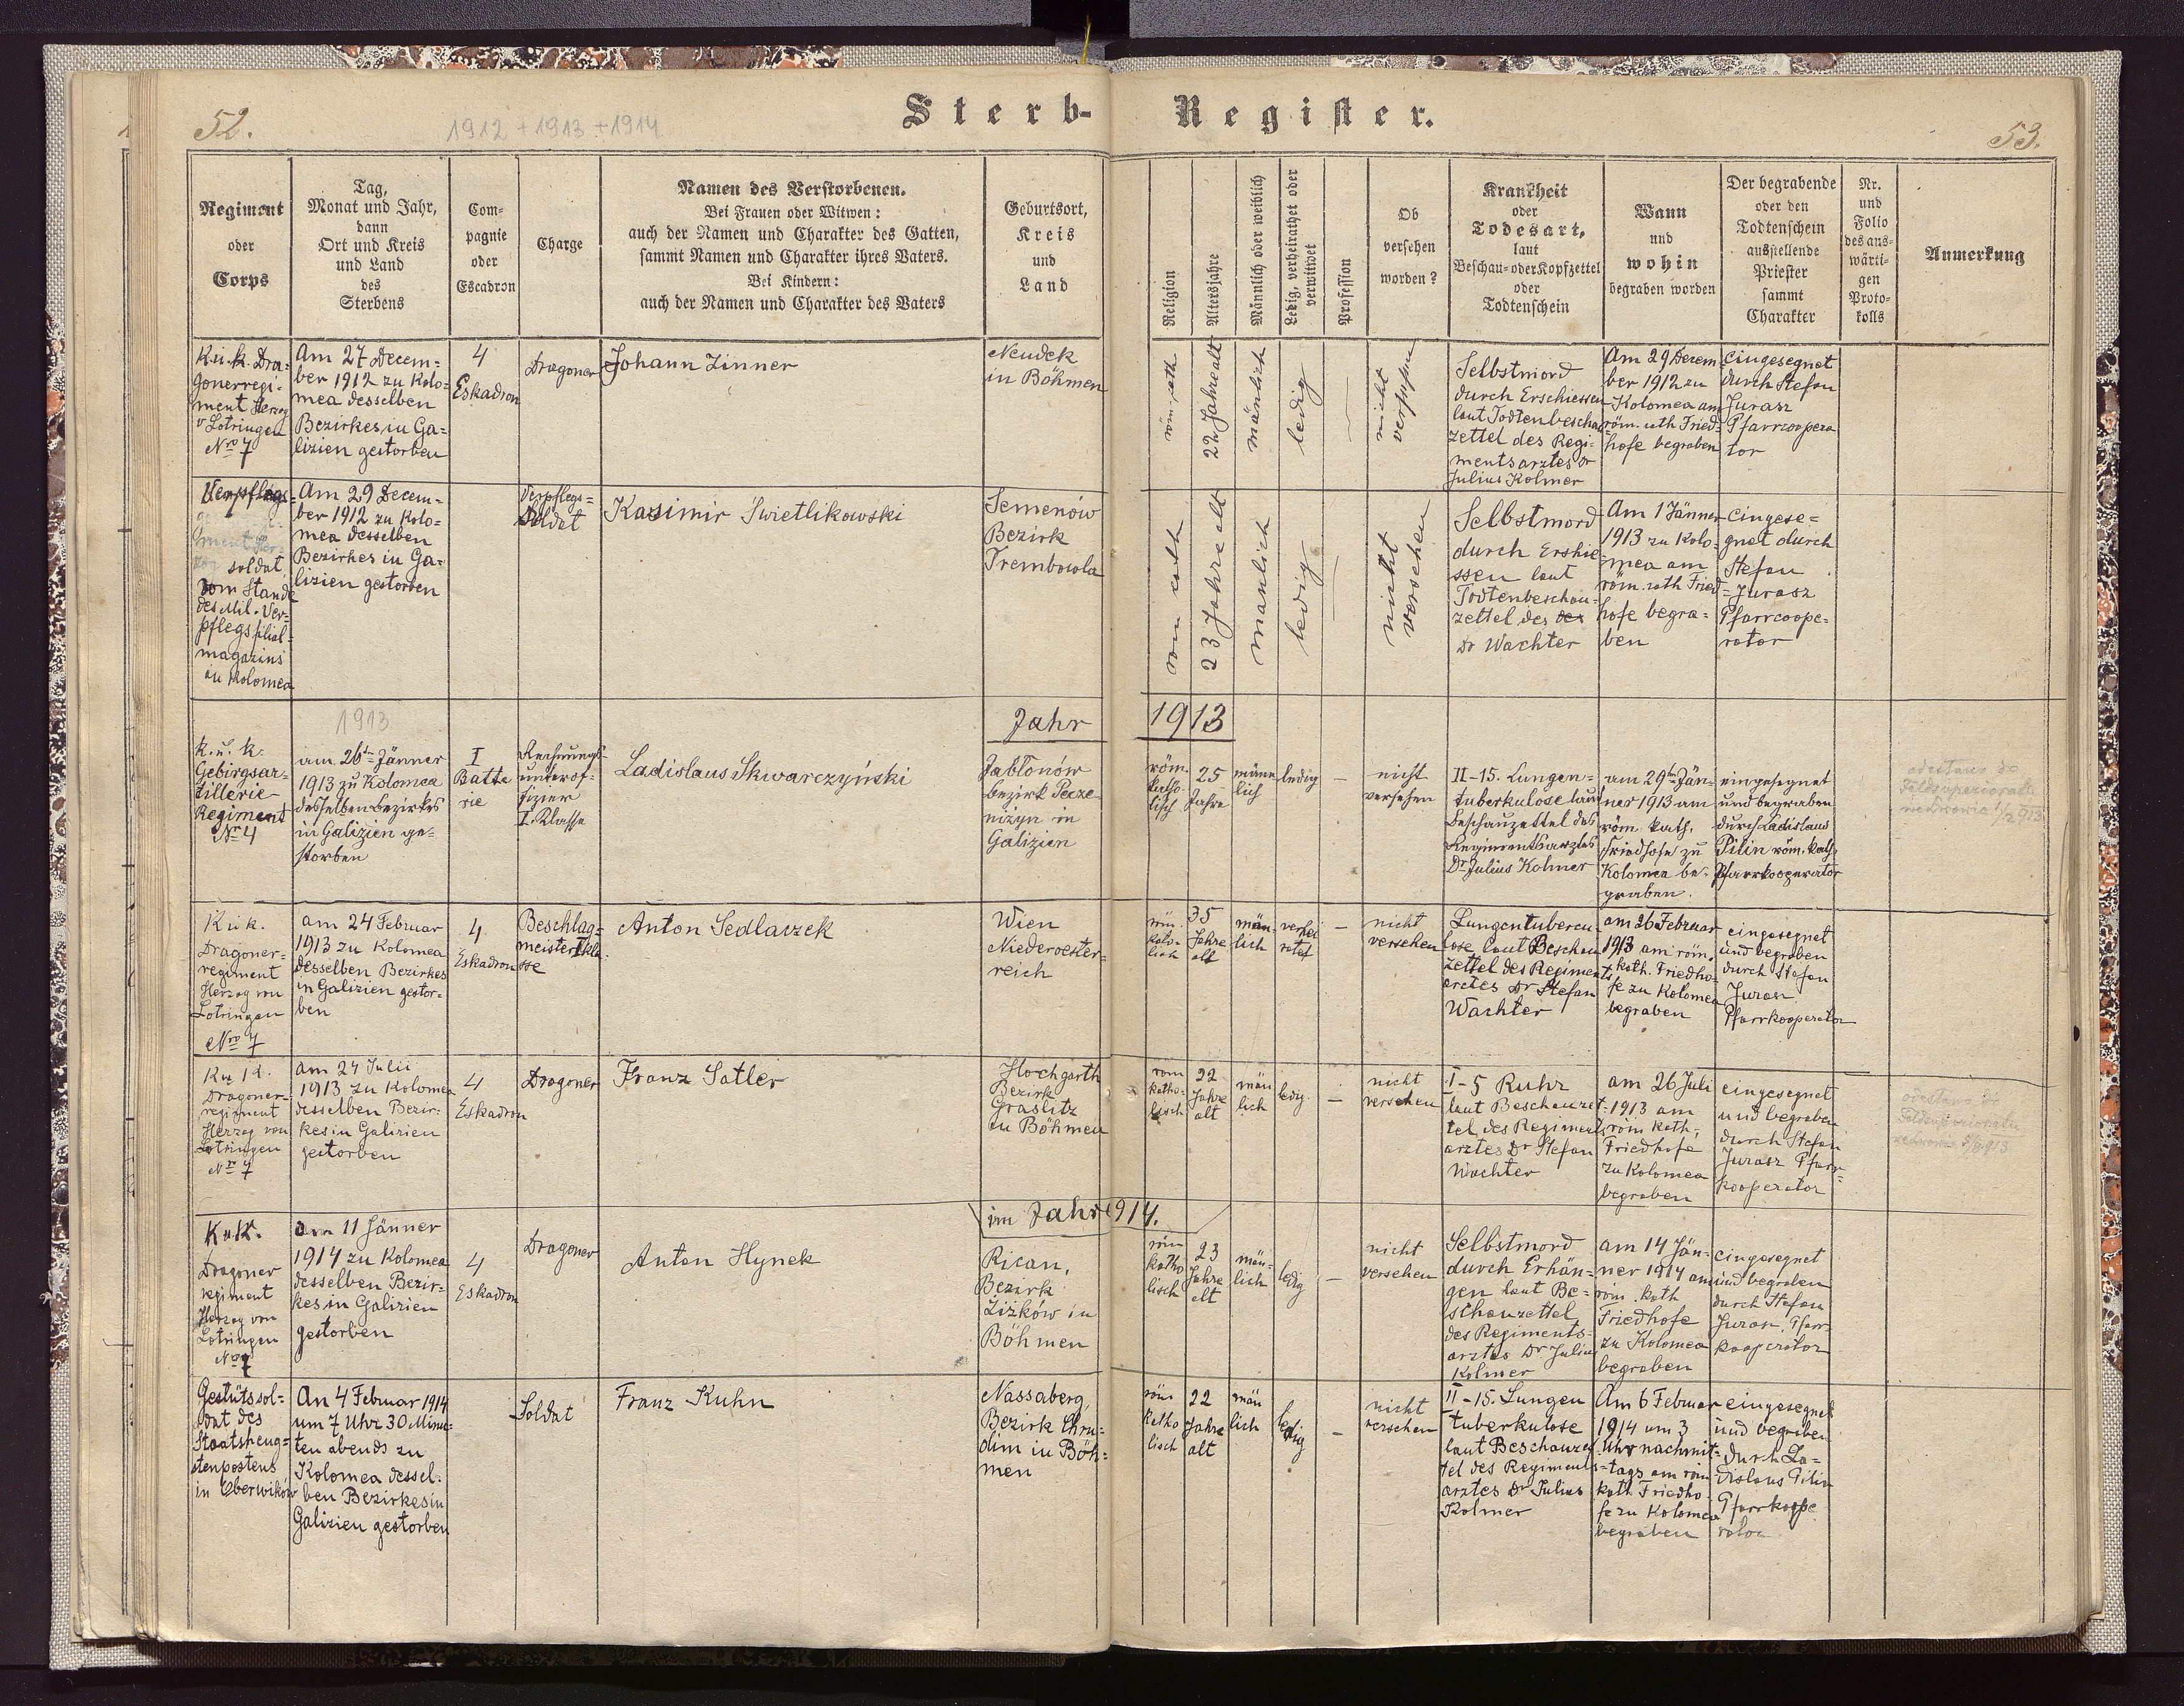 52.
1912 + 1913 + 1914
Sterb-
Register.
53.
Regiment
oder
Corps
Tag,
Monat und Jahr,
dann
Ort und Kreis
und Land
des
Sterbens
Com-
pagnie
oder
Escadron
Charge
Namen des Verstorbenen.
Bei Frauen oder Witwen:
auch der Namen und Charakter des Gatten,
sammt Namen und Charakter ihres Vaters.
Bei Kindern:
auch der Namen und Charakter des Vaters
Geburtsort,
Kreis
und
Land
Religion
Altersjahre
Männlich oder weiblich
Ledig, verheirathet oder
verwitwet
Profession
Ob
versehen
worden?
Krankheit
oder
Todesart,
laut
Beschau- oder Kopfzettel
oder
Todtenschein
Wann
und
wohin
begraben worden
Der begrabende
oder den
Todtenschein
ausstellende
Priester
sammt
Charakter
Nr.
und
Folio
des aus-
wärti-
gen
Proto-
kolls
Anmerkung
K.u.k. Dra-
gonerregi-
ment Herzog
v Lotringen
Nro 7
Am 27 Decem=
ber 1912 zu Kolo=
mea desselben
Bezirkes in Ga=
lizien gestorben
4
Eskadron
Dragoner
Johann Zinner
Neudek
in Böhmen
röm. cath
22 Jahre alt
mänlich
ledig
—
nicht
versehen
Selbstmord
durch Erschiessen
laut Todtenbeschau
zettel des Regi-
mentsarztes Dr
Julius Kolmer
Am 29 Decem
ber 1912 zu
Kolomea am
röm. cath Fried-
hofe begraben
eingesegnet
durch Stefan
Jurasz
Pfarrcoopera
tor
Verpflegs=
soldat
vom Stande
des Mil. Ver=
pflegsfilial=
magazins
in Kolomea
Am 29 Decem=
ber 1912 zu Kolo=
mea desselben
Bezirkes in Ga=
lizien gestorben
Verpflegs=
Soldat
Kasimir Świetlikowski
Semenów
Bezirk
Trembowla
rom cath
23 Jahre alt
manlich
ledig
—
nicht
versehen
Selbstmord
durch Ershie
ssen laut
Todtenbeschau=
zettel des des
Dr Wachter
Am 1 Jänner
1913 zu Kolo=
mea am
röm. cath Fried=
hofe begra=
ben
eingese=
gnet durch
Stefan
Jurasz
Pfarrcoope=
rator
1913
Jahr 1913
k. u. k.
Gebirgsar-
tillerie
Regiment
Nr 4
am 26ten Jänner
1913 zu Kolomea
desselben Bezirkes
in Galizien ge-
storben
I
Batte
rie
Rechnungs-
unterof-
fizier
I. Klasse
Ladislaus Skwarczyński
Jabłonów
bezirk Pecze-
niżyn in
Galizien
röm.
katho-
lisch
25
Jahre
männ
lich
ledig
—
nicht
versehen
II-15. Lungen=
tuberkulose laut
Beschauzettel des
Regimentsarztes
Dr Julius Kolmer
am 29ten Jän-
ner 1913 am
röm. kath.
Friedhofe zu
Kolomea be-
graben.
eingesegnet
und begraben
durch Ladislaus
Pilin röm. kath.
Pfarrkooperator
K u k.
Dragoner=
regiment
Herzog von
Lotringen
Nro 7
am 24 Februar
1913 zu Kolomea
desselben Bezirkes
in Galizien gestor-
ben
4
Eskadron
Beschlag=
meister I Kla
sse
Anton Sedlaczek
Wien
Niederoester-
reich
röm.
kato-
lisch
35
Jahre
alt
män
lich
verhei
ratet
—
nicht
versehen
Lungentubercu
lose laut Beschau
zettel des Regiments
arctes Dr Stefan
Wachter
am 26 Februar
1913 am röm.
kath. Friedho-
fe zu Kolomea
begraben
eingesegnet
und begraben
durch Stefan
Jurasz
Pfarrkooperator
K u k.
Dragoner-
regiment
Herzog von
Lotringen
Nr 7
am 24 Julii
1913 zu Kolomea
desselben Bezir-
kes in Galizien
gestorben
4
Eskadron
Dragoner
Franz Satler
Hochgarth
Bezirk
Graslitz
in Böhmen
rom
katho-
lisch
22
Jahre
alt
män
lich
ledig.
—
nicht
versehen
I-5 Ruhr
laut Beschauzet-
tel des Regiments
arztes Dr Stefan
Wachter
am 26 Juli
1913 am
röm kath.
Friedhofe
zu Kolomea
begraben
eingesegnet
und begraben
durch Stefan
Jurasz Pfarr-
kooperator
im Jahr 1914.
K u K.
Dragoner
regiment
Herzog von
Lotringen
No 7
am 11 Jänner
1914 zu Kolomea
desselben Bezir-
kes in Galizien
gestorben
4
Eskadron
Dragoner
Anton Hynek
Rican,
Bezirk
Žižków in
Böhmen
röm
katho
lisch
23
Jahre
alt
män-
lich
ledig
—
nicht
versehen
Selbstmord
durch Erhän-
gen laut Be-
schauzettel
des Regiments-
arztes Dr Julius
Kolmer
am 14 Jän-
ner 1914 am
röm. kath
Friedhofe
zu Kolomea
begraben
eingesegnet
und begraben
durch Stefan
Jurasz, Pfarr-
kooperator
Gestütssol=
dat des
Staatsheng=
stenpostens
in Oberwikow
An 4 Februar 1914
um 7 Uhr 30 Minu-
ten abends zu
Kolomea dessel-
ben Bezirkes in
Galizien gestorben
Soldat
Franz Kuhn
Nassaberg
Bezirk Chru-
dim in Böh-
men
röm
katho
lisch
22
Jahre
alt
män
lich
ledig
—
nicht
versehen
II-15. Lungen
tuberkulose
laut Beschauzet
tel des Regiments
arztes Dr Julius
Kolmer
Am 6 Februar
1914 um 3
Uhr nachmit-
tags am röm
kath Friedho
fe zu Kolomea
begraben
eingesegnet
und begraben
durch La-
dislaus Pilin
Pfarrkoope
rator